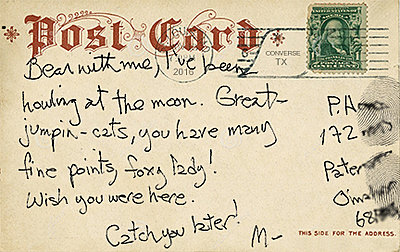 Post Card
2016
CONVERSE
TX
Bear with me, I've been
howling at the moon. Great-
jumpin-cats, you have many
fine points, foxy lady!
Wish you were here.
Catch you later!
M-
P.
172
THIS SIDE FOR THE ADDRESS.